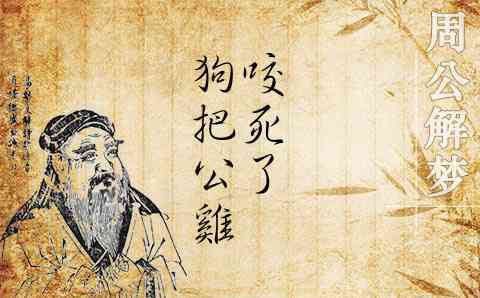 周公解梦
狗把公雞
咬死了